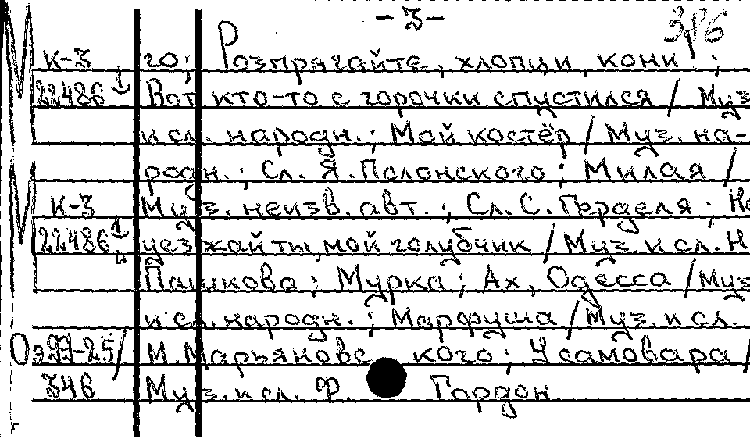 - 3 -
386
К-3 го; Розпрягайте, хлопци, кони;
22486 Вот кто-то с горочки спустился / Муз
и сл. народн.; Мой костёр / Муз. на-
родн.; Сл. Я. Полонского; Милая /
К-3 Муз. неизв. авт.; Сл. С. Герделя; Не
22486 уезжай ты, мой голубчик / Муз. и сл. Н
Пашкова; Мурка; Ах, Одесса / Муз
и сл. народн.; Марфуша / Муз. и сл.
Оз99-25/ М. Марьяновс кого; У самовара /
346 Муз. и сл. Ф. Гордон